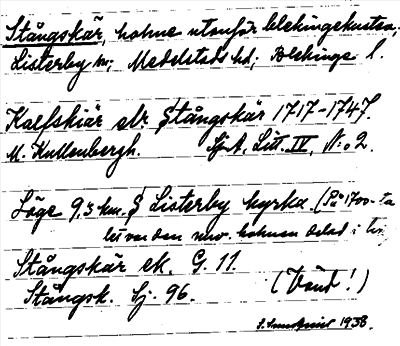 Stångskär, holme utanför Blekingekusten,
Listerby sn, Medelstads hd, Blekinge l.
Kalfskiär elr. Stångskär 1717-1747.
M. Kullenbergh. Sj.A. Litt. IV, N:o 2.
Läge 9,3 km. S Listerby kyrka. (På 1700-ta
let var den nuv. holmen delad i två
Stångskär ek. G. 11.
Stångsk. Sj. 96. (Vänd!)
1938.